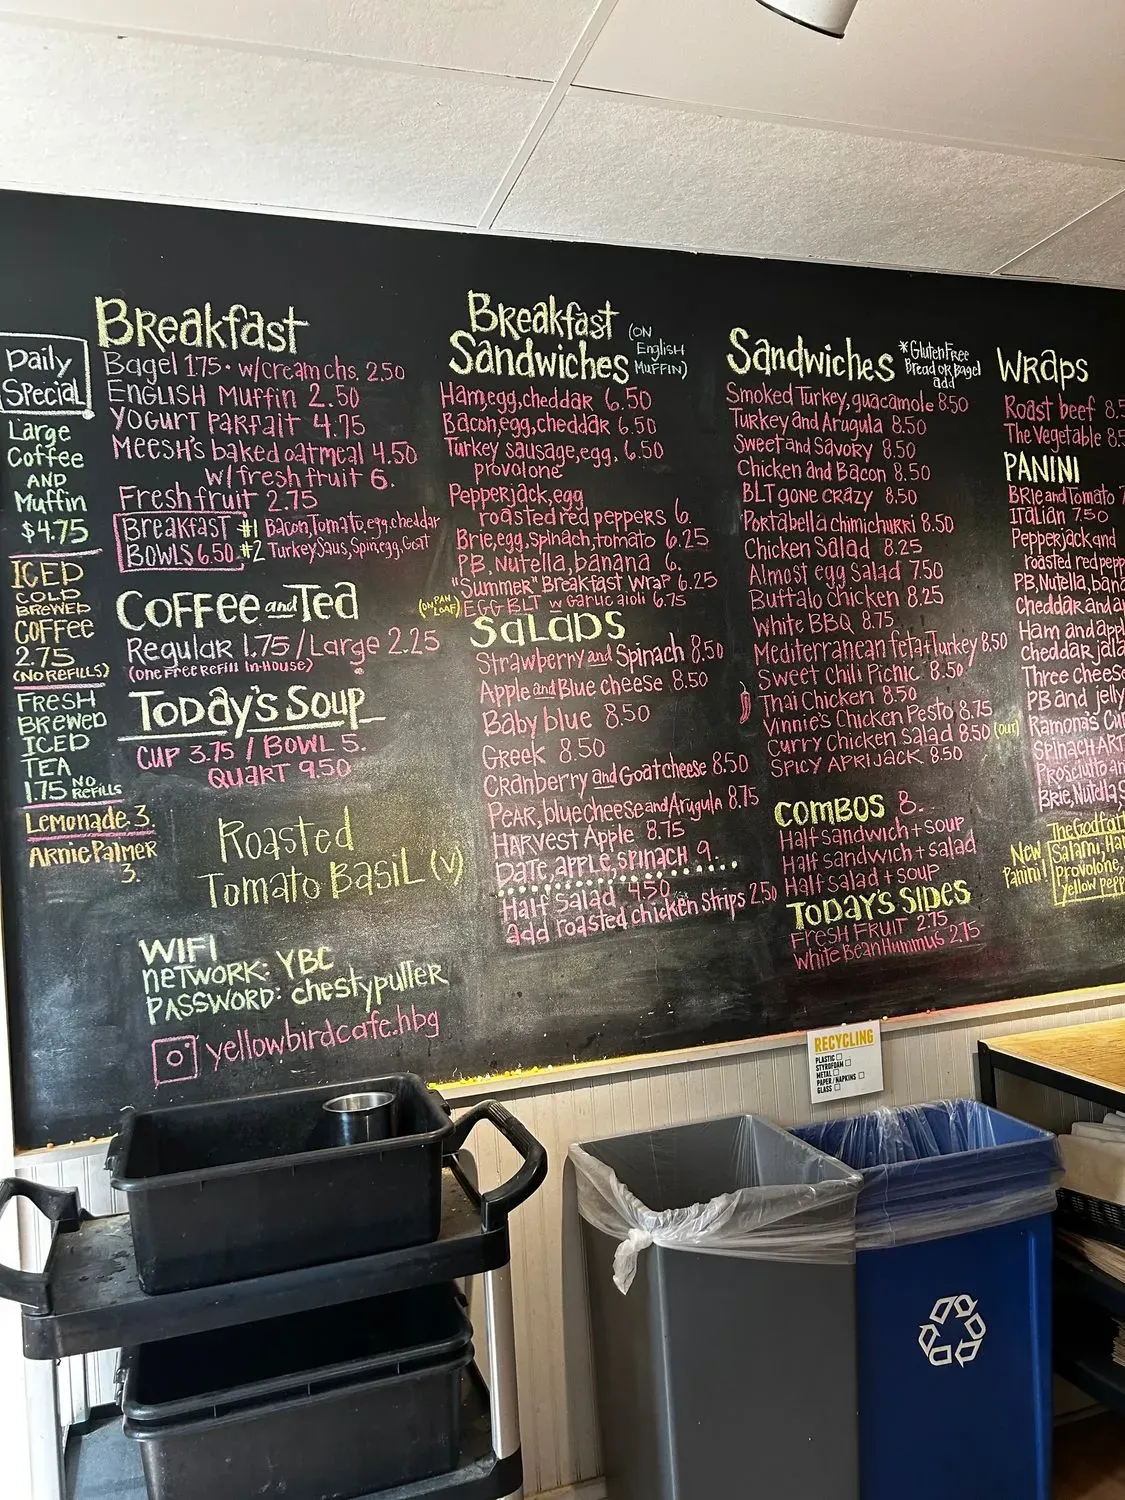 Daily
Special
Large
Coffee
AND
Muffin
$4.75
ICED
COLD
BREWED
COFFEE
2.75
(NO REFILLS)
FRESH
BREWED
ICED
TEA
1.75 NO REFILLS
Lemonade 3.
Arnie Palmer
3.
Breakfast
Bagel 1.75 • w/cream chs. 2.50
ENGLISH Muffin 2.50
YOGURT PARFAIT 4.75
MEESH'S baked oatmeal 4.50
w/ fresh fruit 6.
Fresh fruit 2.75
Breakfast #1 Bacon, Tomato, egg, cheddar
BOWLS 6.50 #2 Turkey Saus, Spin, egg, Goat
COFFEE and TEA
Regular 1.75 / Large 2.25
(one FREE REFILL IN-HOUSE)
TODAY'S SOUP
CUP 3.75 / BOWL 5.
QUART 9.50
Roasted
Tomato BASIL (V)
WIFI
NETWORK: YBC
PASSWORD: chestypuller
yellowbirdcafe.hbg
Breakfast
Sandwiches
(ON
English
MUFFIN)
Ham, egg, cheddar 6.50
Bacon, egg, cheddar 6.50
Turkey sausage, egg, 6.50
provolone
Pepperjack, egg
roasted red peppers 6.
Brie, egg, spinach, tomato 6.25
PB, Nutella, banana 6.
"Summer" Breakfast Wrap 6.25
(ON PAN
LOAF) EGG BLT w GARLIC aioli 6.75
SALADS
Strawberry and Spinach 8.50
Apple and Blue cheese 8.50
Baby blue 8.50
Greek 8.50
Cranberry and Goat cheese 8.50
PEAR, blue cheese and Arugula 8.75
HARVEST Apple 8.75
DATE, apple, spinach 9.
Half Salad 4.50
add roasted chicken strips 2.50
Sandwiches
*Gluten Free
Bread or Bagel
add
Smoked Turkey, guacamole 8.50
Turkey and Arugula 8.50
Sweet and Savory 8.50
Chicken and Bacon 8.50
BLT gone crazy 8.50
Portabella chimichurri 8.50
Chicken Salad 8.25
Almost egg Salad 7.50
Buffalo chicken 8.25
White BBQ 8.75
Mediterranean feta + Turkey 8.50
Sweet Chili Picnic 8.50
Thai Chicken 8.50
Vinnie's Chicken Pesto 8.75
Curry Chicken Salad 8.50 (out)
SPICY APRIJACK 8.50
COMBOS 8.
Half sandwich + soup
Half sandwich + salad
Half salad + soup
TODAY'S SIDES
FRESH FRUIT 2.75
White Bean Hummus 2.75
Wraps
Roast beef 8.5
The Vegetable 8.5
PANINI
BRIE and Tomato 7
ITALIAN 7.50
Pepperjack and
roasted red pepp
PB, Nutella, bana
Cheddar and a
Ham and appl
cheddar, jala
Three cheese
PB and jelly
Ramona's Cu
SPINACH ART
Prosciutto an
Brie, Nutella, S
New
Panini!
The Godfat
Salami, Ha
provolone,
yellow pepp
RECYCLING
PLASTIC
STYROFOAM
METAL
PAPER/NAPKINS
GLASS